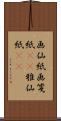 画仙紙画箋
紙雅仙
紙